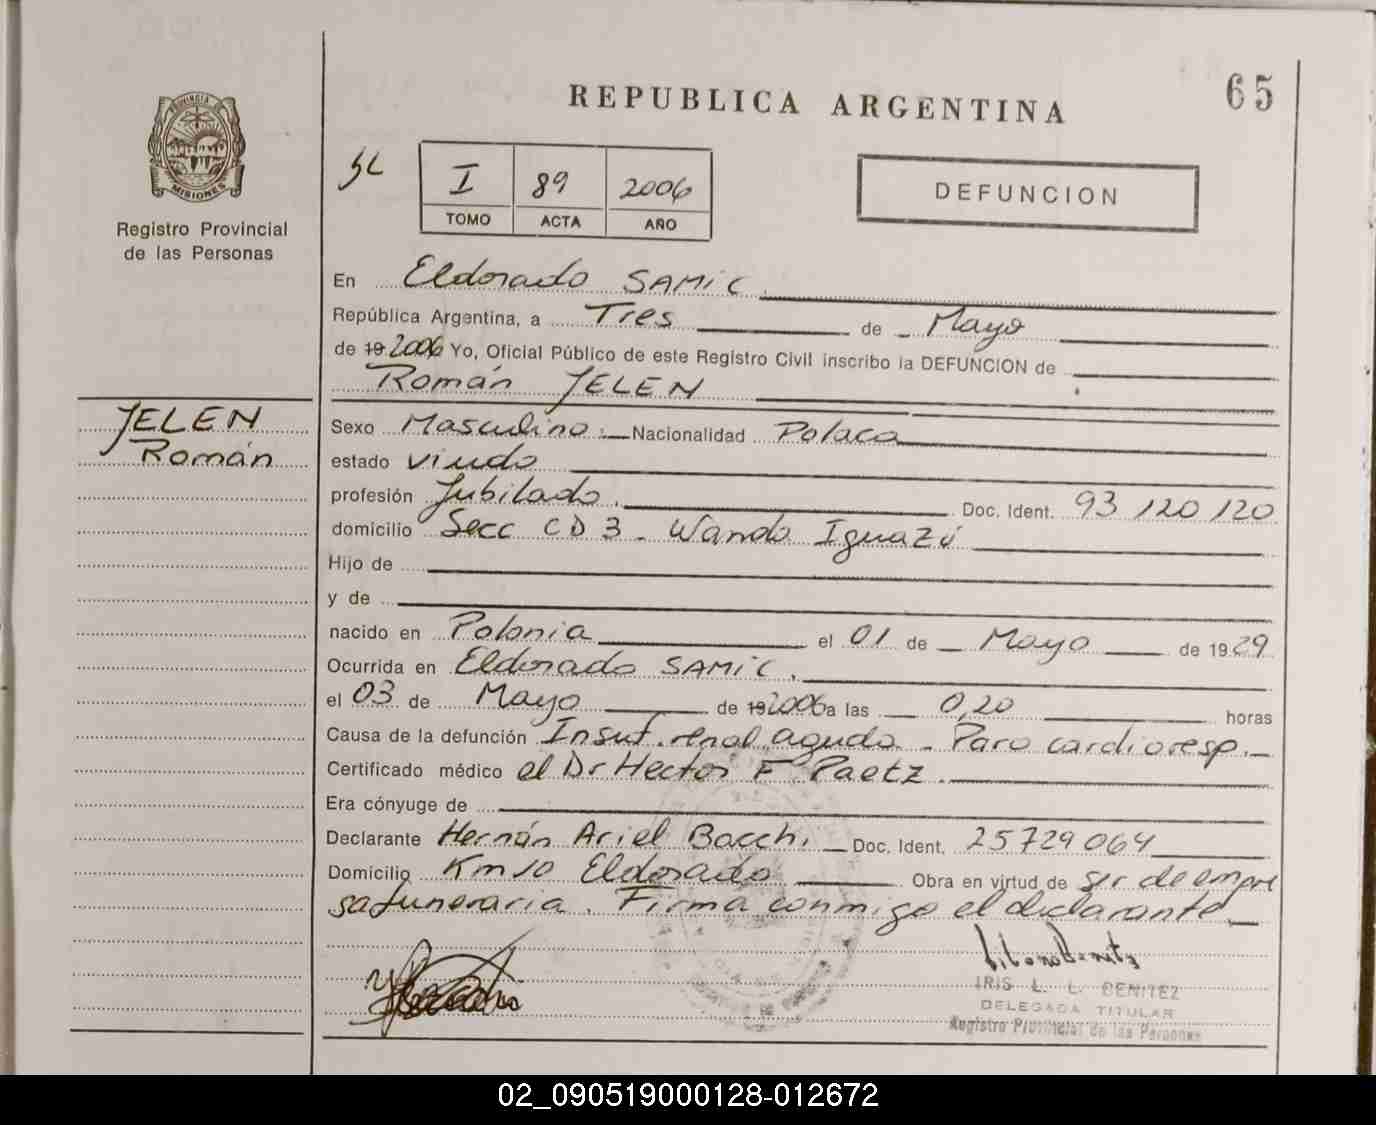 65
REPUBLICA ARGENTINA
PROVINCIA DE
MISIONES
Registro Provincial
de las Personas
I 89 2006
TOMO ACTA AÑO
DEFUNCION
En Eldorado SAMIC.
República Argentina, a Tres de Mayo
de 19 2006 Yo, Oficial Público de este Registro Civil inscribo la DEFUNCION de
Román JELEN
JELEN
Román
Sexo Masculino. Nacionalidad Polaca
estado viudo
profesión Jubilado. Doc. Ident. 93 120 120
domicilio Secc CD 3 - Wanda Iguazú
Hijo de
y de
nacido en Polonia el 01 de Mayo de 1929
Ocurrida en Eldorado SAMIC.
el 03 de Mayo de 19 2006 a las 0,20 horas
Causa de la defunción Insuf. renal aguda - Paro cardioresp.
Certificado médico el Dr Hector F. Paetz.
Era cónyuge de
Declarante Hernán Ariel Bacchi Doc. Ident. 25729064
Domicilio Km 10 Eldorado Obra en virtud de ser de empre
sa funeraria. Firma conmigo el declarante
IRIS L. L. BENITEZ
DELEGADA TITULAR
Registro Provincial de las Personas
02_090519000128-012672